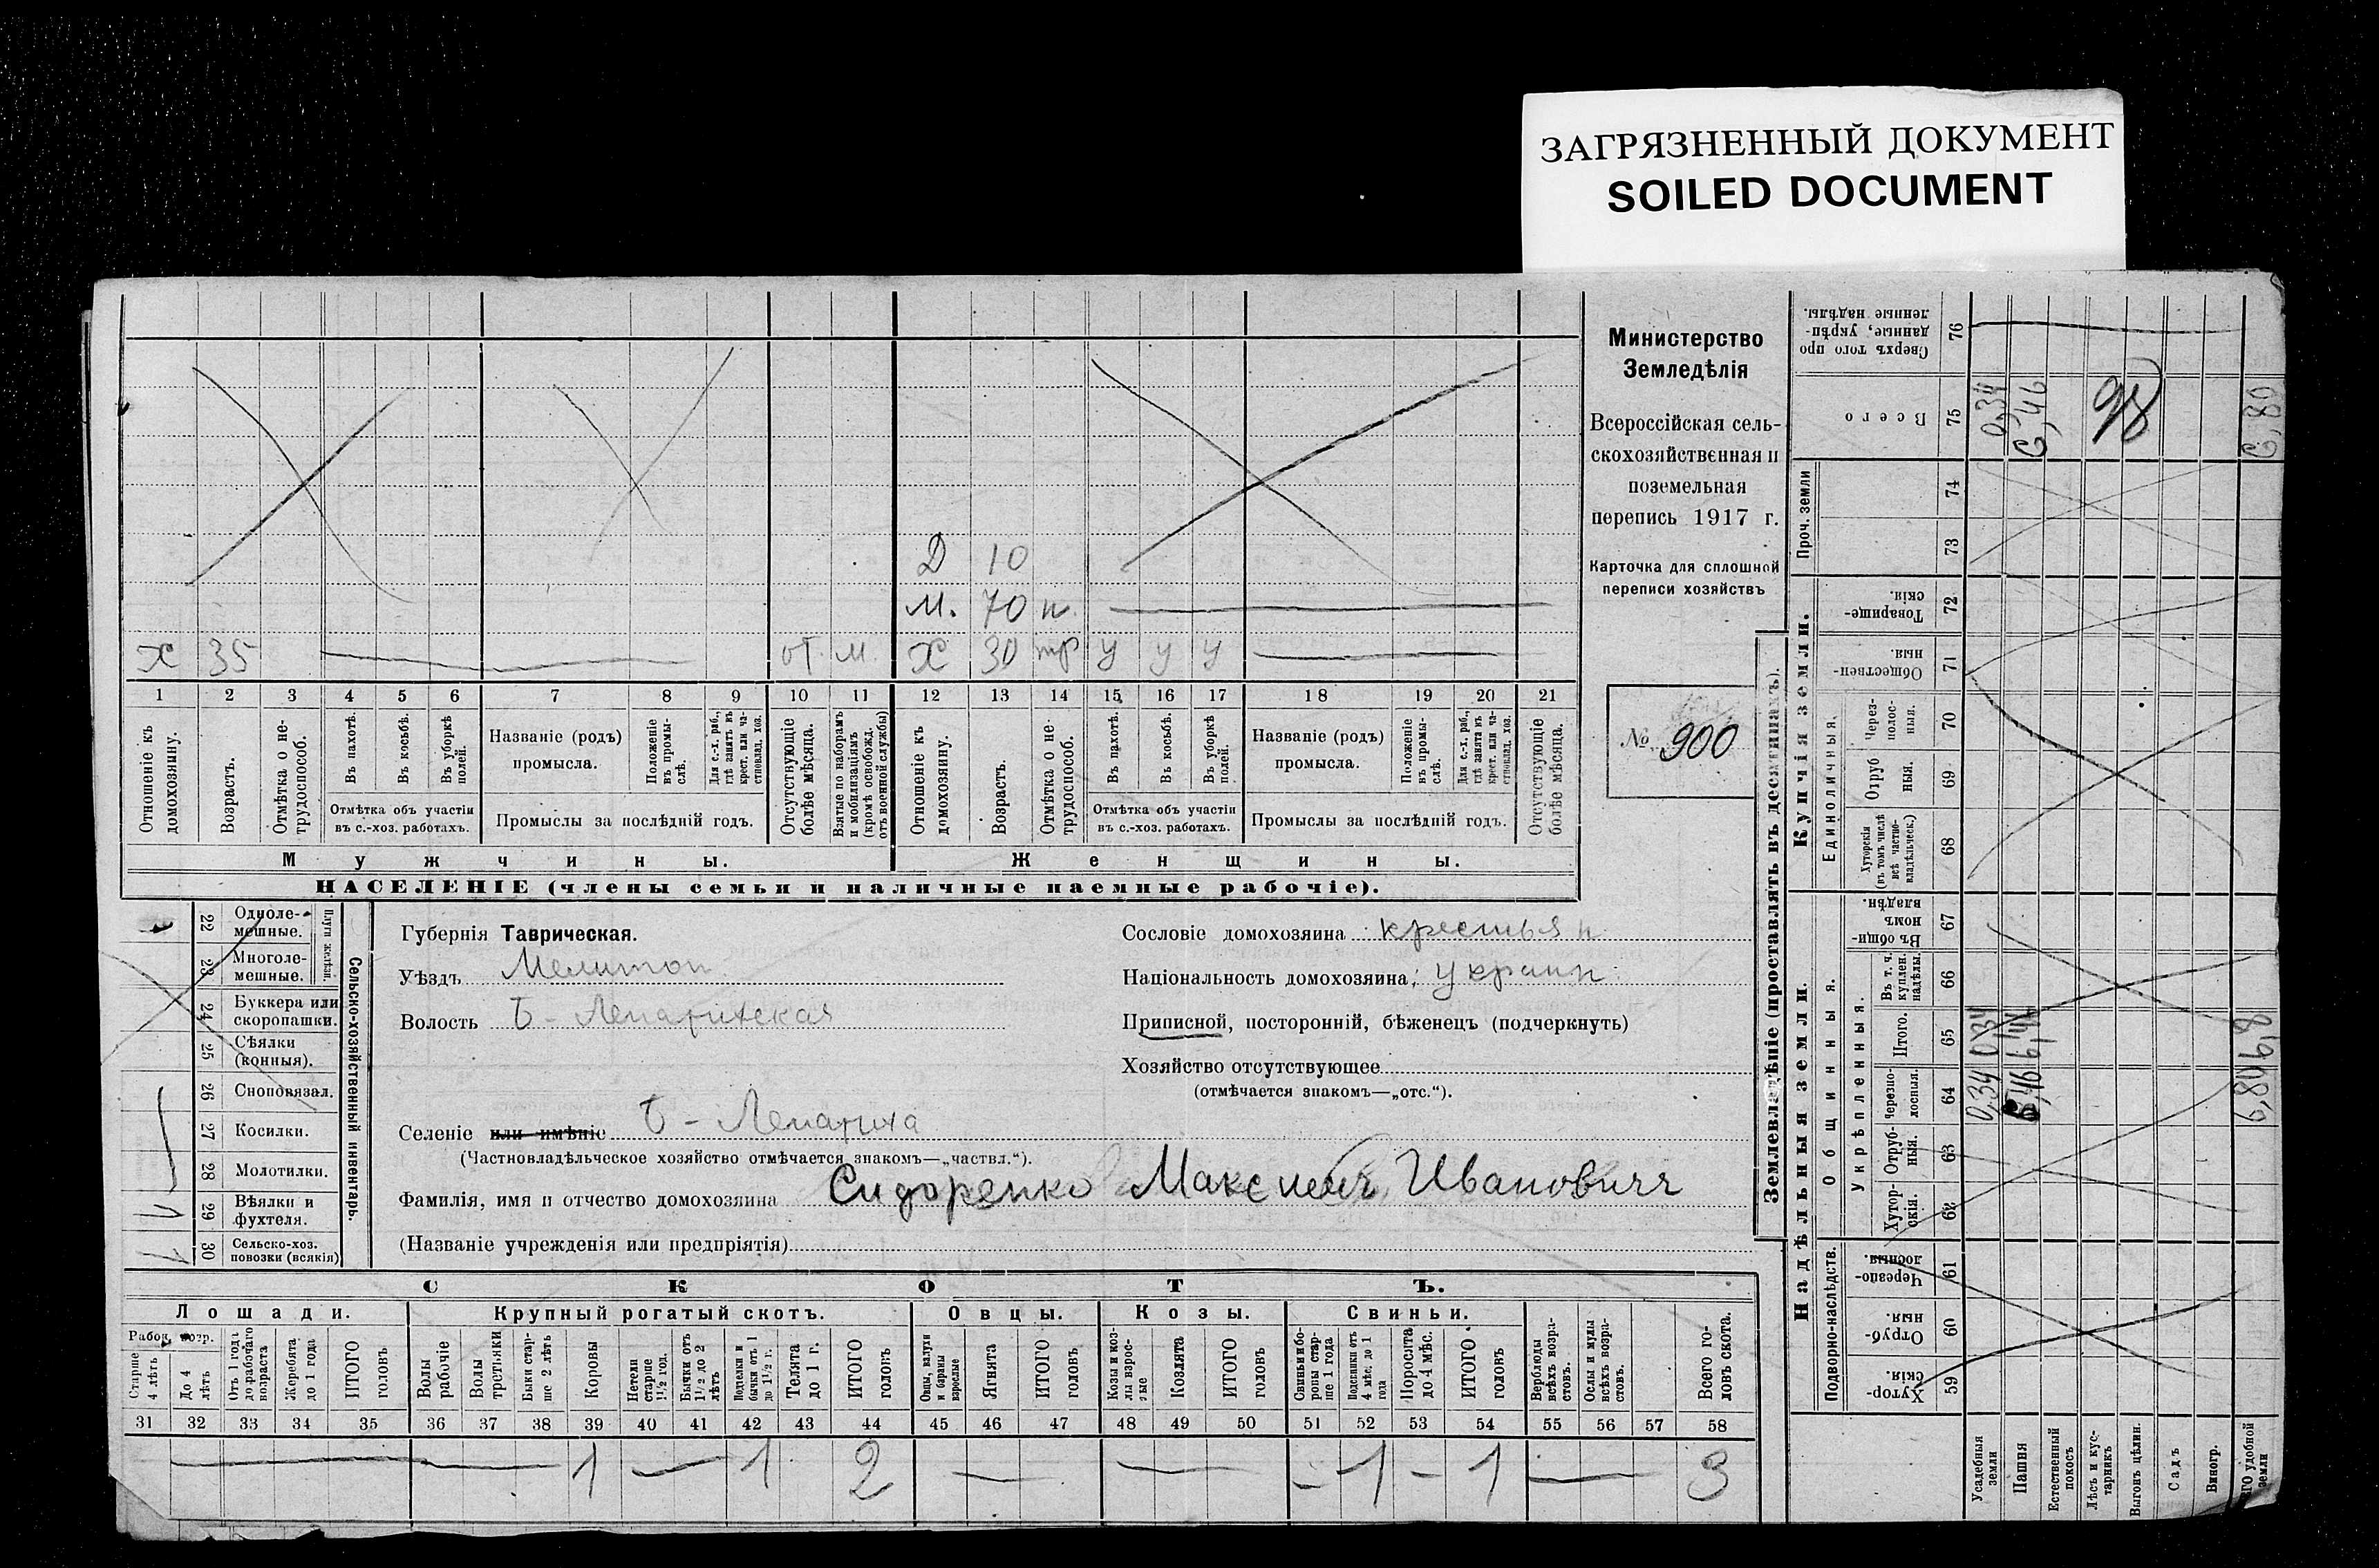 ЗАГРЯЗНЕННЫЙ ДОКУМЕНТ
SOILED DOCUMENT
Министерство
Земледѣлія
Всероссійская сель-
скохозяйственная и
поземельная
перепись 1917 г.
Карточка для сплошной
переписи хозяйствъ
№ 900
Д 10
м. 70 н.
х 35 от. м. х 30 тр у у у
1 2 3 4 5 6 7 8 9 10 11 12 13 14 15 16 17 18 19 20 21
Отношеніе къ домохозяину.
Возрастъ.
Отмѣтка о не-трудоспособ.
Въ пахотѣ.
Въ косьбѣ.
Въ уборкѣ полей.
Отмѣтка объ участіи
въ с.-хоз. работахъ.
Названіе (родъ)
промысла.
Положеніе въ промы-слѣ.
Для с.-х. раб., гдѣ занятъ въ крест. или ча-стновлад. хоз.
Промыслы за послѣдній годъ.
Отсутствующіе болѣе мѣсяца.
Взятые по наборамъ и мобилизаціямъ (кромѣ освобожд. отъ военной службы)
Отношеніе къ домохозяину.
Возрастъ.
Отмѣтка о не-трудоспособ.
Въ пахотѣ.
Въ косьбѣ.
Въ уборкѣ полей.
Отмѣтка объ участіи
въ с.-хоз. работахъ.
Названіе (родъ)
промысла.
Положеніе въ промы-слѣ.
Для с.-х. раб., гдѣ занята въ крест. или ча-стновлад. хоз.
Промыслы за послѣдній годъ.
Отсутствующіе болѣе мѣсяца.
Мужчины.
Женщины.
НАСЕЛЕНІЕ (члены семьи и наличные наемные рабочіе).
Сельско-хозяйственный инвентарь.
22 Одноле-мешные.
23 Многоле-мешные.
24 Буккера или скоропашки.
25 Сѣялки (конныя).
26 Сноповязал.
27 Косилки.
28 Молотилки.
29 Вѣялки и фухтеля.
1
30 Сельско-хоз. повозки (всякія)
1
Губернія Таврическая.
Уѣздъ Мелитоп
Волость Б-Лепатихская
Селеніе или имѣніе Б-Лепатиха
(Частновладѣльческое хозяйство отмѣчается знакомъ—„частвл.“).
Фамилія, имя и отчество домохозяина Сидоренко Максимъ Ивановичъ
(Названіе учрежденія или предпріятія)
Сословіе домохозяина крестьян
Національность домохозяина: украин
Приписной, посторонній, бѣженецъ (подчеркнуть)
Хозяйство отсутствующее
(отмѣчается знакомъ—„отс.“).
СКОТЪ.
Лошади. Крупный рогатый скотъ. Овцы. Козы. Свиньи.
Рабоч. возр.
Старше 4 лѣтъ
До 4 лѣтъ
Отъ 1 года до рабочаго возраста
Жеребята до 1 года
ИТОГО головъ
Волы рабочіе
Волы третьяки
Быки стар-ше 2 лѣтъ
Коровы
Нетели старше 1½ год.
Бычки отъ 1½ до 2 лѣтъ
Подтелки и бычки отъ 1 до 1½ г.
Телята до 1 г.
ИТОГО головъ
Овцы, валухи и бараны взрослые
Ягнята
ИТОГО головъ
Козы и коз-лы взрос-лые
Козлята
ИТОГО головъ
Свиньи и бо-ровы стар-ше 1 года
Подсвинки отъ 4 мѣс. до 1 года
Поросята до 4 мѣс.
ИТОГО головъ
Верблюды всѣхъ возра-стовъ.
Ослы и мулы всѣхъ возра-стовъ.
Всего го-ловъ скота.
31 32 33 34 35 36 37 38 39 40 41 42 43 44 45 46 47 48 49 50 51 52 53 54 55 56 57 58
1 — 1 2 — — - 1 - 1 — 3
Землевладѣніе (проставлять въ десятинахъ).
Надѣльныя земли.
Купчія земли.
Проч. земли
Подворно-наслѣдств.
Общинныя.
Укрѣпленныя.
Единоличныя.
Хутор-скія. 59
Отруб-ныя. 60
Черезпо-лосныя. 61
Хутор-скія. 62
Отруб-ныя. 63
Черезпо-лосныя. 64
Итого. 65
Въ т. ч. куплен. надѣлы. 66
Въ общи-номъ владѣн. 67
Хуторскія (въ томъ числѣ всѣ частно-владѣльческ.) 68
Отруб ныя. 69
Через-полос-ныя. 70
Обществен-ныя. 71
Товарище-скія. 72
73
74
Всего 75
Сверхъ того про данные, укрѣп-ленные надѣлы. 76
Усадебныя земли 0,34 0,34 0,34
Пашня 6,46 6,46
Естественный покосъ
Лѣсъ и кус-тарникъ
Выгонъ цѣлин.
Садъ
Виногр.
ЕГО удобной земли 6,80 6,80